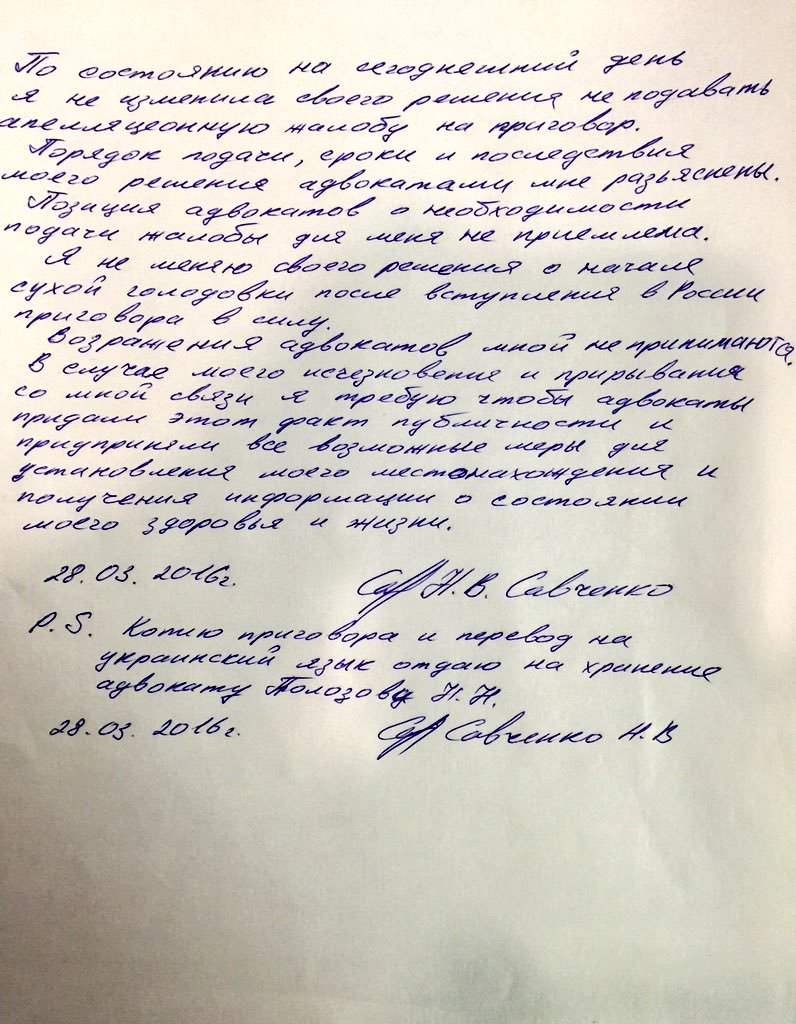 По состоянию на сегоднешний день
я не изменила своего решения не подавать
апелляцеонную жалобу на приговор.
Порядок подачи, сроки и последствия
моего решения адвокатами мне разьяснены.
Позиция адвокатов о необходимости
подачи жалобы для меня не приемлема.
Я не меняю своего решения о начале
сухой голодовки после вступления в России
приговора в силу.
Возражения адвокатов мной не принимаются.
В случае моего исчезновения и прирывания
со мной связи я требую чтобы адвокаты
придали этот факт публичности и
придприняли все возможные меры для
установления моего местонахождения и
получения информации о состоянии
моего здоровья и жизни.
28.03.2016г. Н.В. Савченко
P.S. Копию приговора и перевод на
украинский язык отдаю на хранение
адвокату Полозову Н.Н.
28.03.2016г. Савченко Н.В